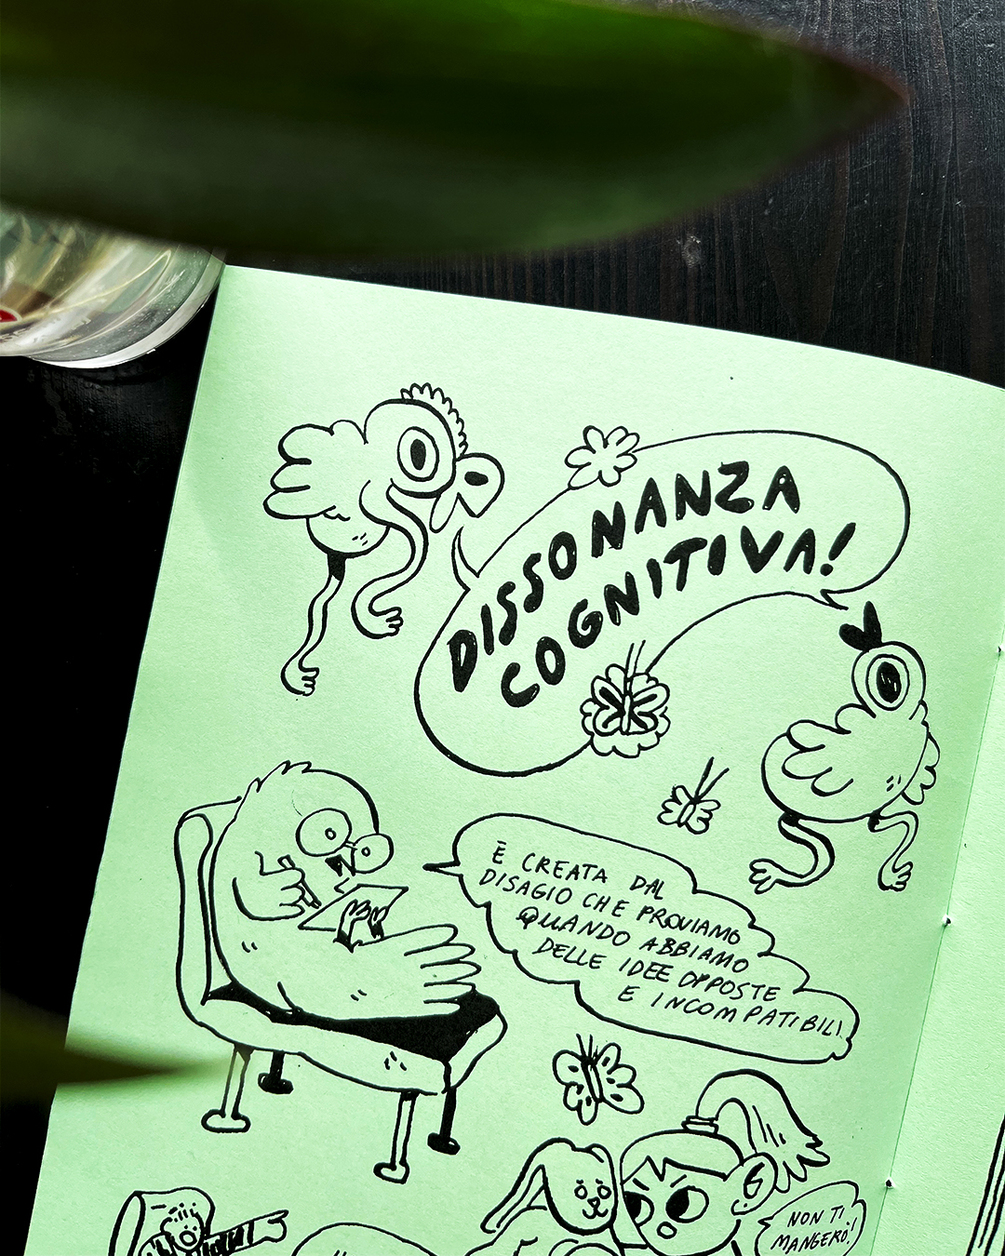 DISSONANZA
COGNITIVA!
È CREATA DAL
DISAGIO CHE PROVIAMO
QUANDO ABBIAMO
DELLE IDEE OPPOSTE
E INCOMPATIBILI
NON TI
MANGERÒ!